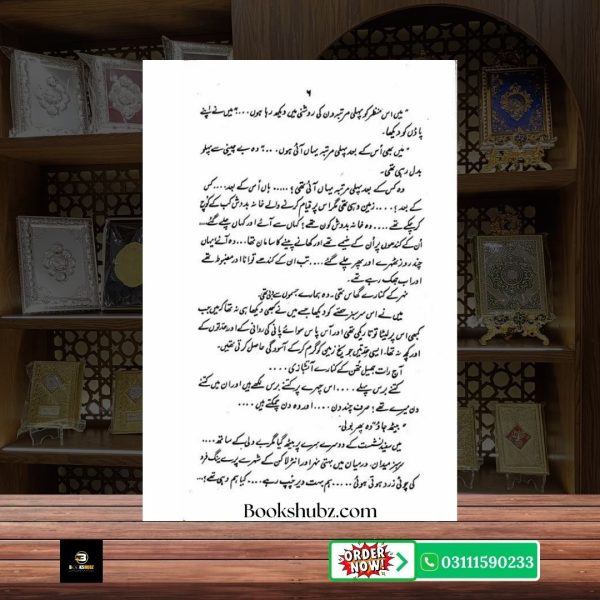 ۶
" میں اس منظر کو پہلی مرتبہ دن کی روشنی میں دیکھ رہا ہوں ...." میں نے اپنے
پاؤں کو دیکھا۔
" میں بھی اُس کے بعد پہلی مرتبہ یہاں آئی ہوں ...." وہ بے چینی سے پہلو
بدل رہی تھی۔
وہ کس کے بعد پہلی مرتبہ یہاں آئی تھی؟ ..... ہاں اُس کے بعد .... کس
کے بعد؟ .... زمین وہی تھی مگر اس پر قیام کرنے والے خانہ بدوش کب کے کوچ
کر چکے تھے .... وہ خانہ بدوش کون تھے؟ کہاں سے آئے اور کہاں چلے گئے ....
اُن کے کندھوں پر اُن کے خیمے تھے اور کھانے پینے کا سامان تھا ... وہ آئے یہاں
چند روز ٹھہرے اور پھر چلے گئے .... تب ان کے کندھے توانا اور مضبوط تھے
اور اب جھک رہے تھے۔
نہر کے کنارے گھاس تھی۔ وہ ہمارے جسموں سے دبی تھی۔
میں نے اس سرسبز حصے کو دیکھا جسے میں نے کبھی دیکھا ہی نہ تھا کہ میں جب
کبھی اس پر لیٹا تو تاریکی تھی اور آس پاس سوائے پانی کی روانی کے اور حدتوں کے
اور کچھ نہ تھا۔ ایسی حدتیں جو یخ زمین کو گرم کر کے آسودگی حاصل کرتی تھیں۔
آج رات جھیل تھُن کے کنارے آتشبازی ....
کتنے برس پہلے .... اس چہرے پر کتنے برس لکھے ہیں اور ان میں کتنے
دن میرے تھے؛ صرف چند دن .... اور وہ دن چمکتے ہیں ....
" بیٹھ جاؤ" وہ پھر بولی۔
میں سفید نشست کے دوسرے سرے پر بیٹھ گیا مگر بے دلی کے ساتھ ....
سرسبز میدان، درمیان میں بہتی نہر اور انٹرلاکن کے شہر سے پرے ینگ فرو
کی چوٹی زرد ہوتی ہوئی ..... ہم بہت دیر چپ رہے .... کیا ہم وہی تھے؟ ...
Bookshubz.com
B
BOOKSHUBZ
ORDER NOW!
03111590233